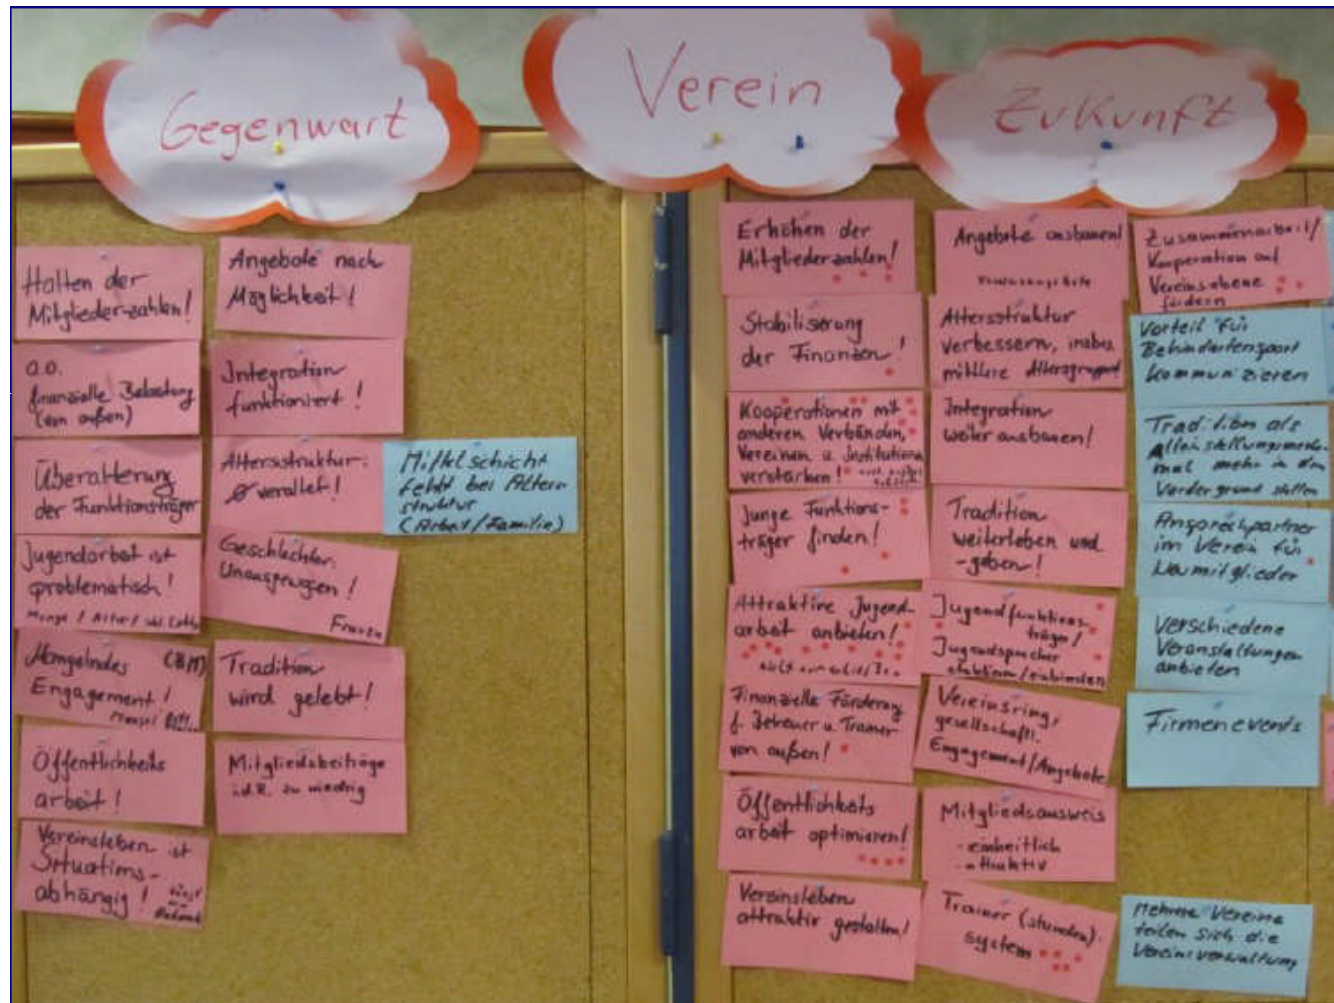 Gegenwart
Verein
Zukunft
Halten der
Mitgliederzahlen!
a.o.
finanzielle Belastung
(von außen)
Überalterung
der Funktionsträger
Jugendarbeit ist
problematisch!
Menge / Alter /
Mangelndes
Engagement!
Öffentlichkeits
arbeit!
Vereinsleben ist
Situations-
abhängig!
Angebote nach
Möglichkeit!
Integration
funktioniert!
Altersstruktur:
Ø veraltet!
Geschlechter:
Unausgewogen!
Frauen
Tradition
wird gelebt!
Mitgliedsbeiträge
i.d.R. zu niedrig
Mittelschicht
fehlt bei Alters
struktur
(Arbeit/Familie)
Erhöhen der
Mitgliederzahlen!
Stabilisierung
der Finanzen!
Kooperationen mit
anderen Verbänden,
Vereinen u. Institutionen
verstärken!
Junge Funktions-
träger finden!
Attraktive Jugend
arbeit anbieten!
Finanzielle Förderung
f. Betreuer u. Trainer
von außen!
Öffentlichkeits
arbeit optimieren!
Vereinsleben
attraktiv gestalten!
Angebote ausbauen!
Altersstruktur
verbessern, insbes.
mittlere Altersgruppe
Integration
weiter ausbauen!
Tradition
weiterleben und
-geben!
Jugendfunktions-
träger/
Jugendsprecher
etablieren/einbinden
Vereinsring,
gesellschaftl.
Engagement/Angebote
Mitgliedsausweis
- einheitlich
- attraktiv
Trainer (stunden)-
system
Zusammenarbeit/
Kooperation auf
Vereinsebene
fördern
Vorteil für
Behindertensport
kommunizieren
Tradition als
Alleinstellungsmerk-
mal mehr in den
Vordergrund stellen
Ansprechpartner
im Verein für
Neumitglieder
Verschiedene
Veranstaltungen
anbieten
Firmenevents
Mehrere Vereine
teilen sich die
Vereinsverwaltung